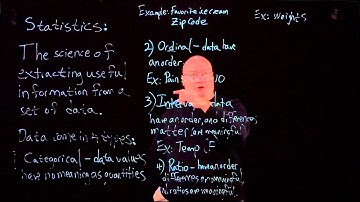 Statistics:
The science of
extracting useful
information from a
set of data.
Data come in 4 types:
1. Categorical - data values
have no meaning as quantities
Example: Favorite ice cream
Zip Code
2) Ordinal - data have
an order
Ex: Pain 10
3) Interval data
have an order, and differences
matter are meaningful
Ex: Temp °F
4) Ratio - have an order
differences are meaningful
ratios are meaningful
Ex: Weights